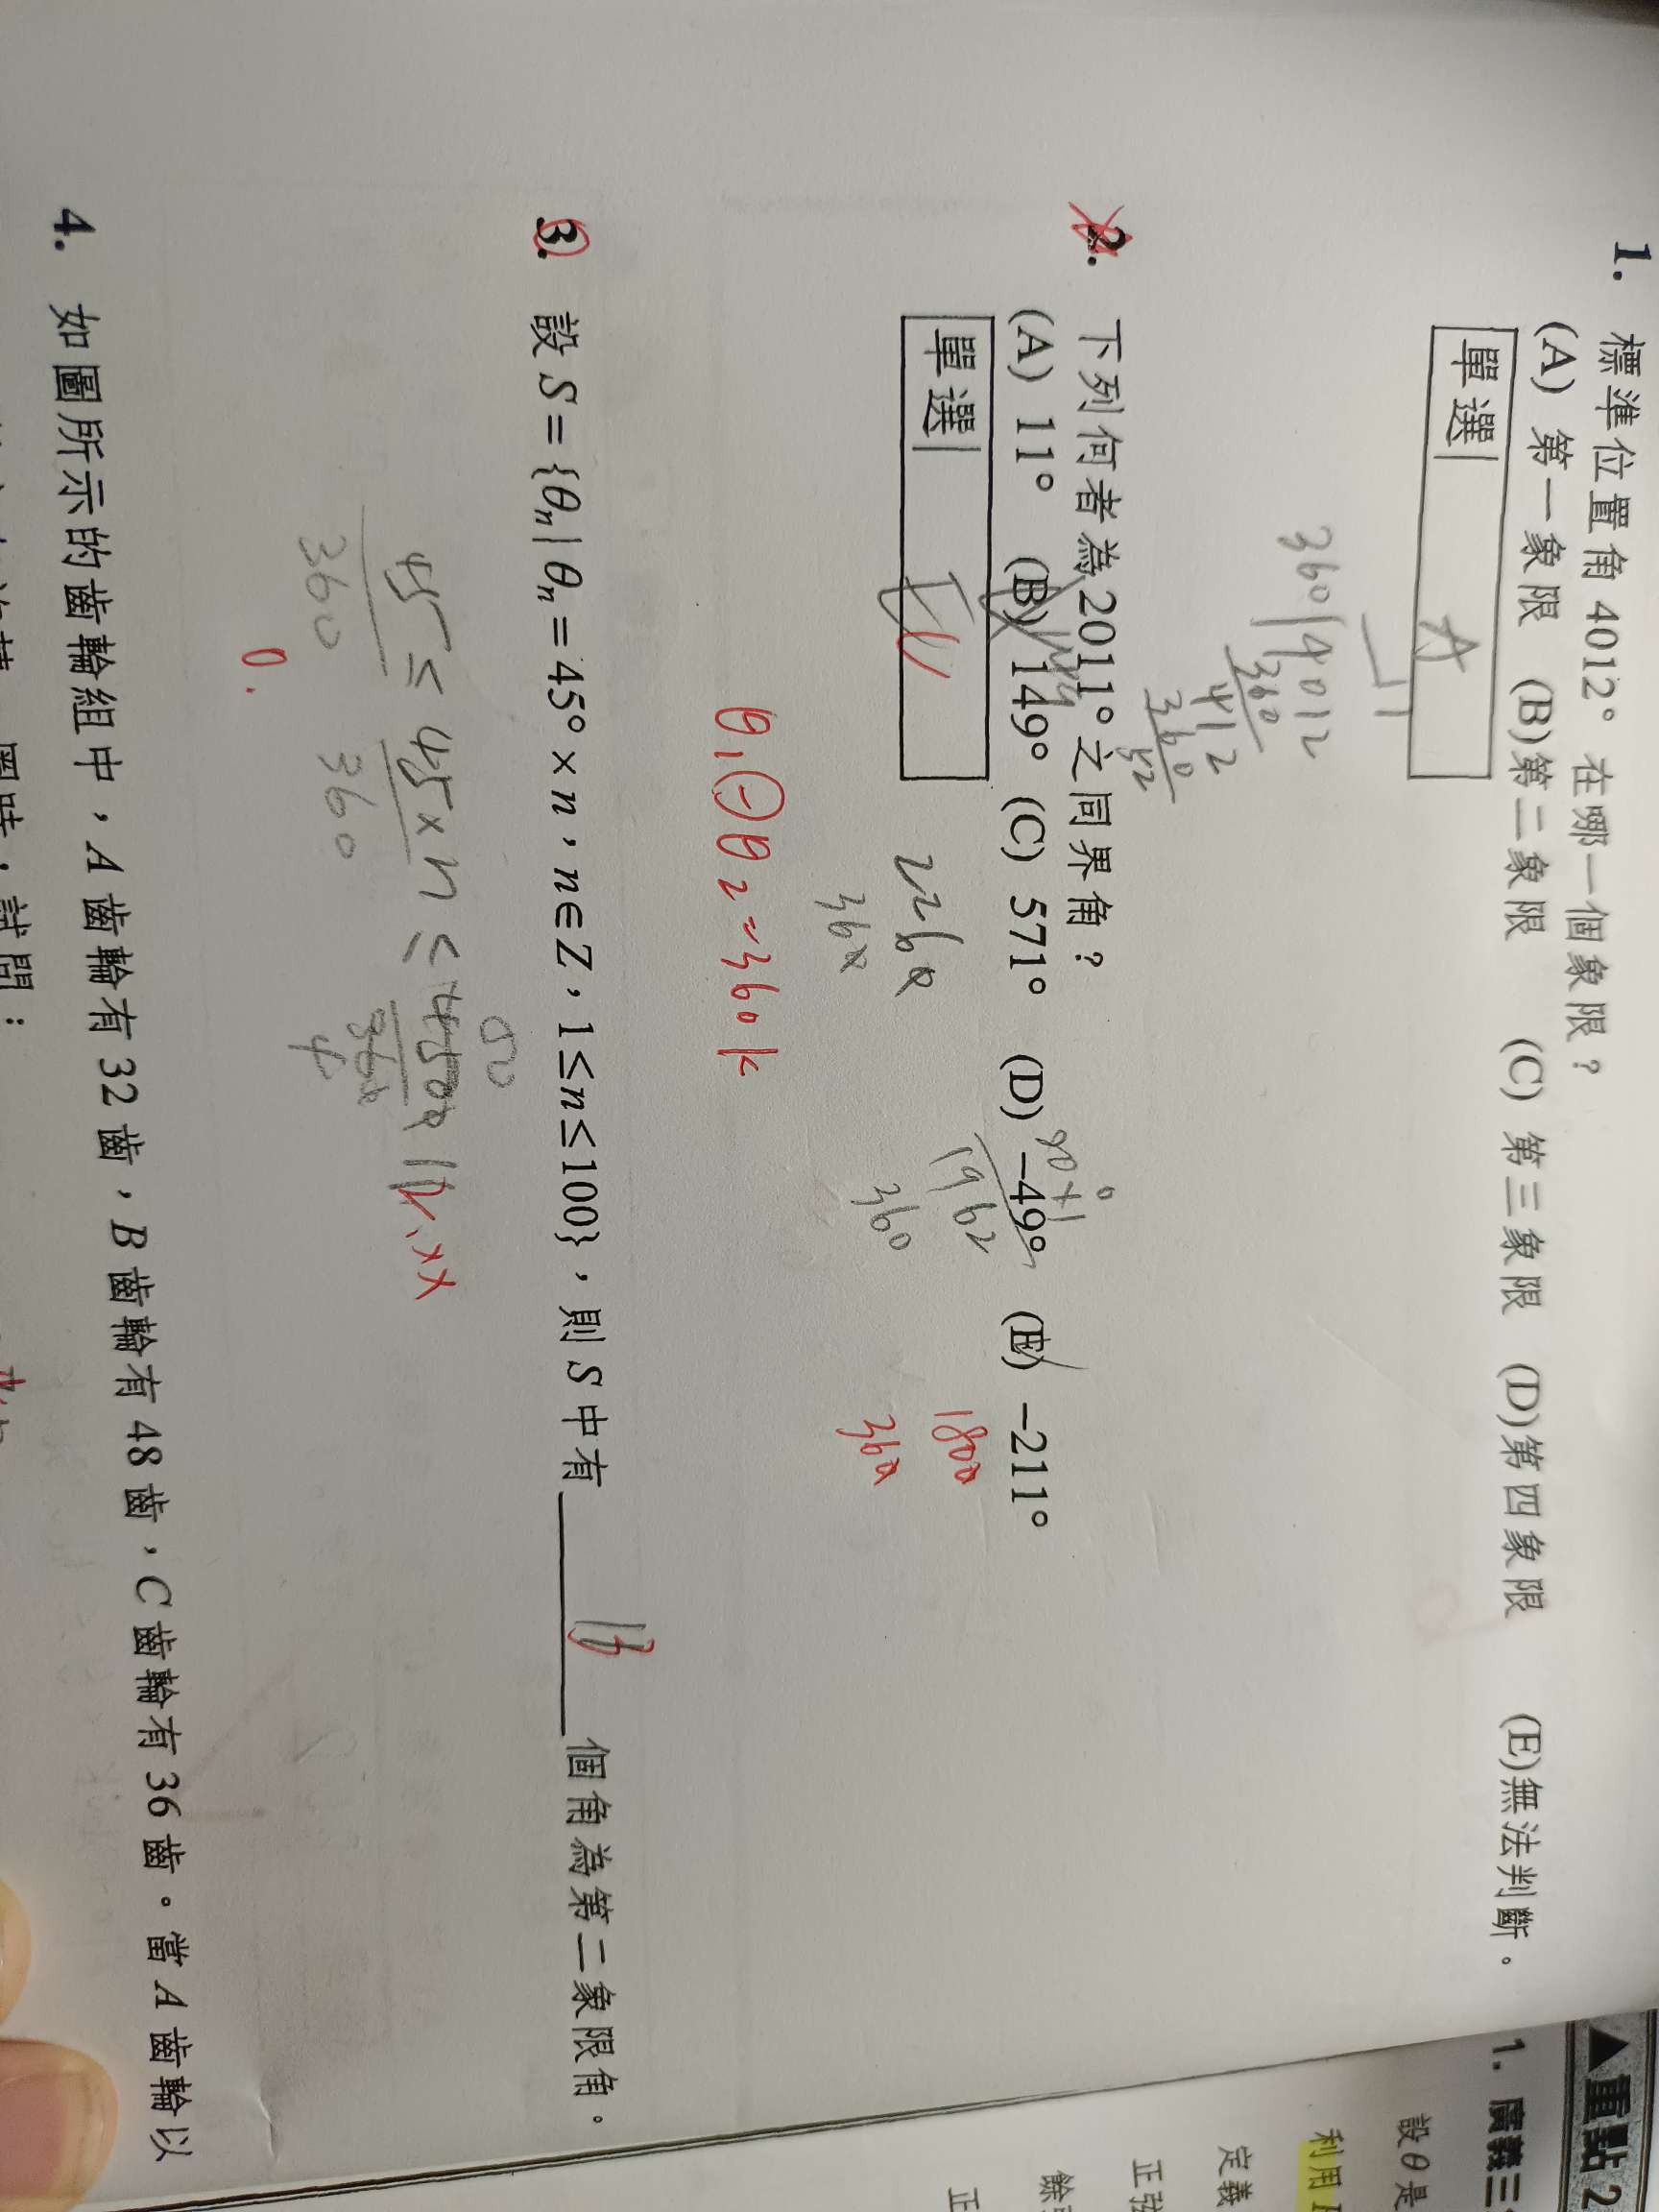 1. 標準位置角 4012° 在哪一個象限？
(A) 第一象限 (B)第二象限 (C) 第三象限 (D)第四象限 (E)無法判斷。
單選 A
11
360 4012
360
412
360
52
2. 下列何者為 2011° 之同界角？
(A) 11° (B) 149° (C) 571° (D) −49° (E) −211°
單選
1962
360
1800
360
θ₁ − θ₂ = 360 k
3. 設 S = {θn | θn = 45° × n，n∈Z，1≤n≤100}，則 S 中有 13 個角為第二象限角。
45 ≤ 45 × n ≤ 4500
360 360 360
0.
12.xx
4. 如圖所示的齒輪組中，A 齒輪有 32 齒，B 齒輪有 48 齒，C 齒輪有 36 齒。當 A 齒輪以
試問：
▲重點 2
1. 廣義三
設 θ 是
利用
定義
正弦
餘
正